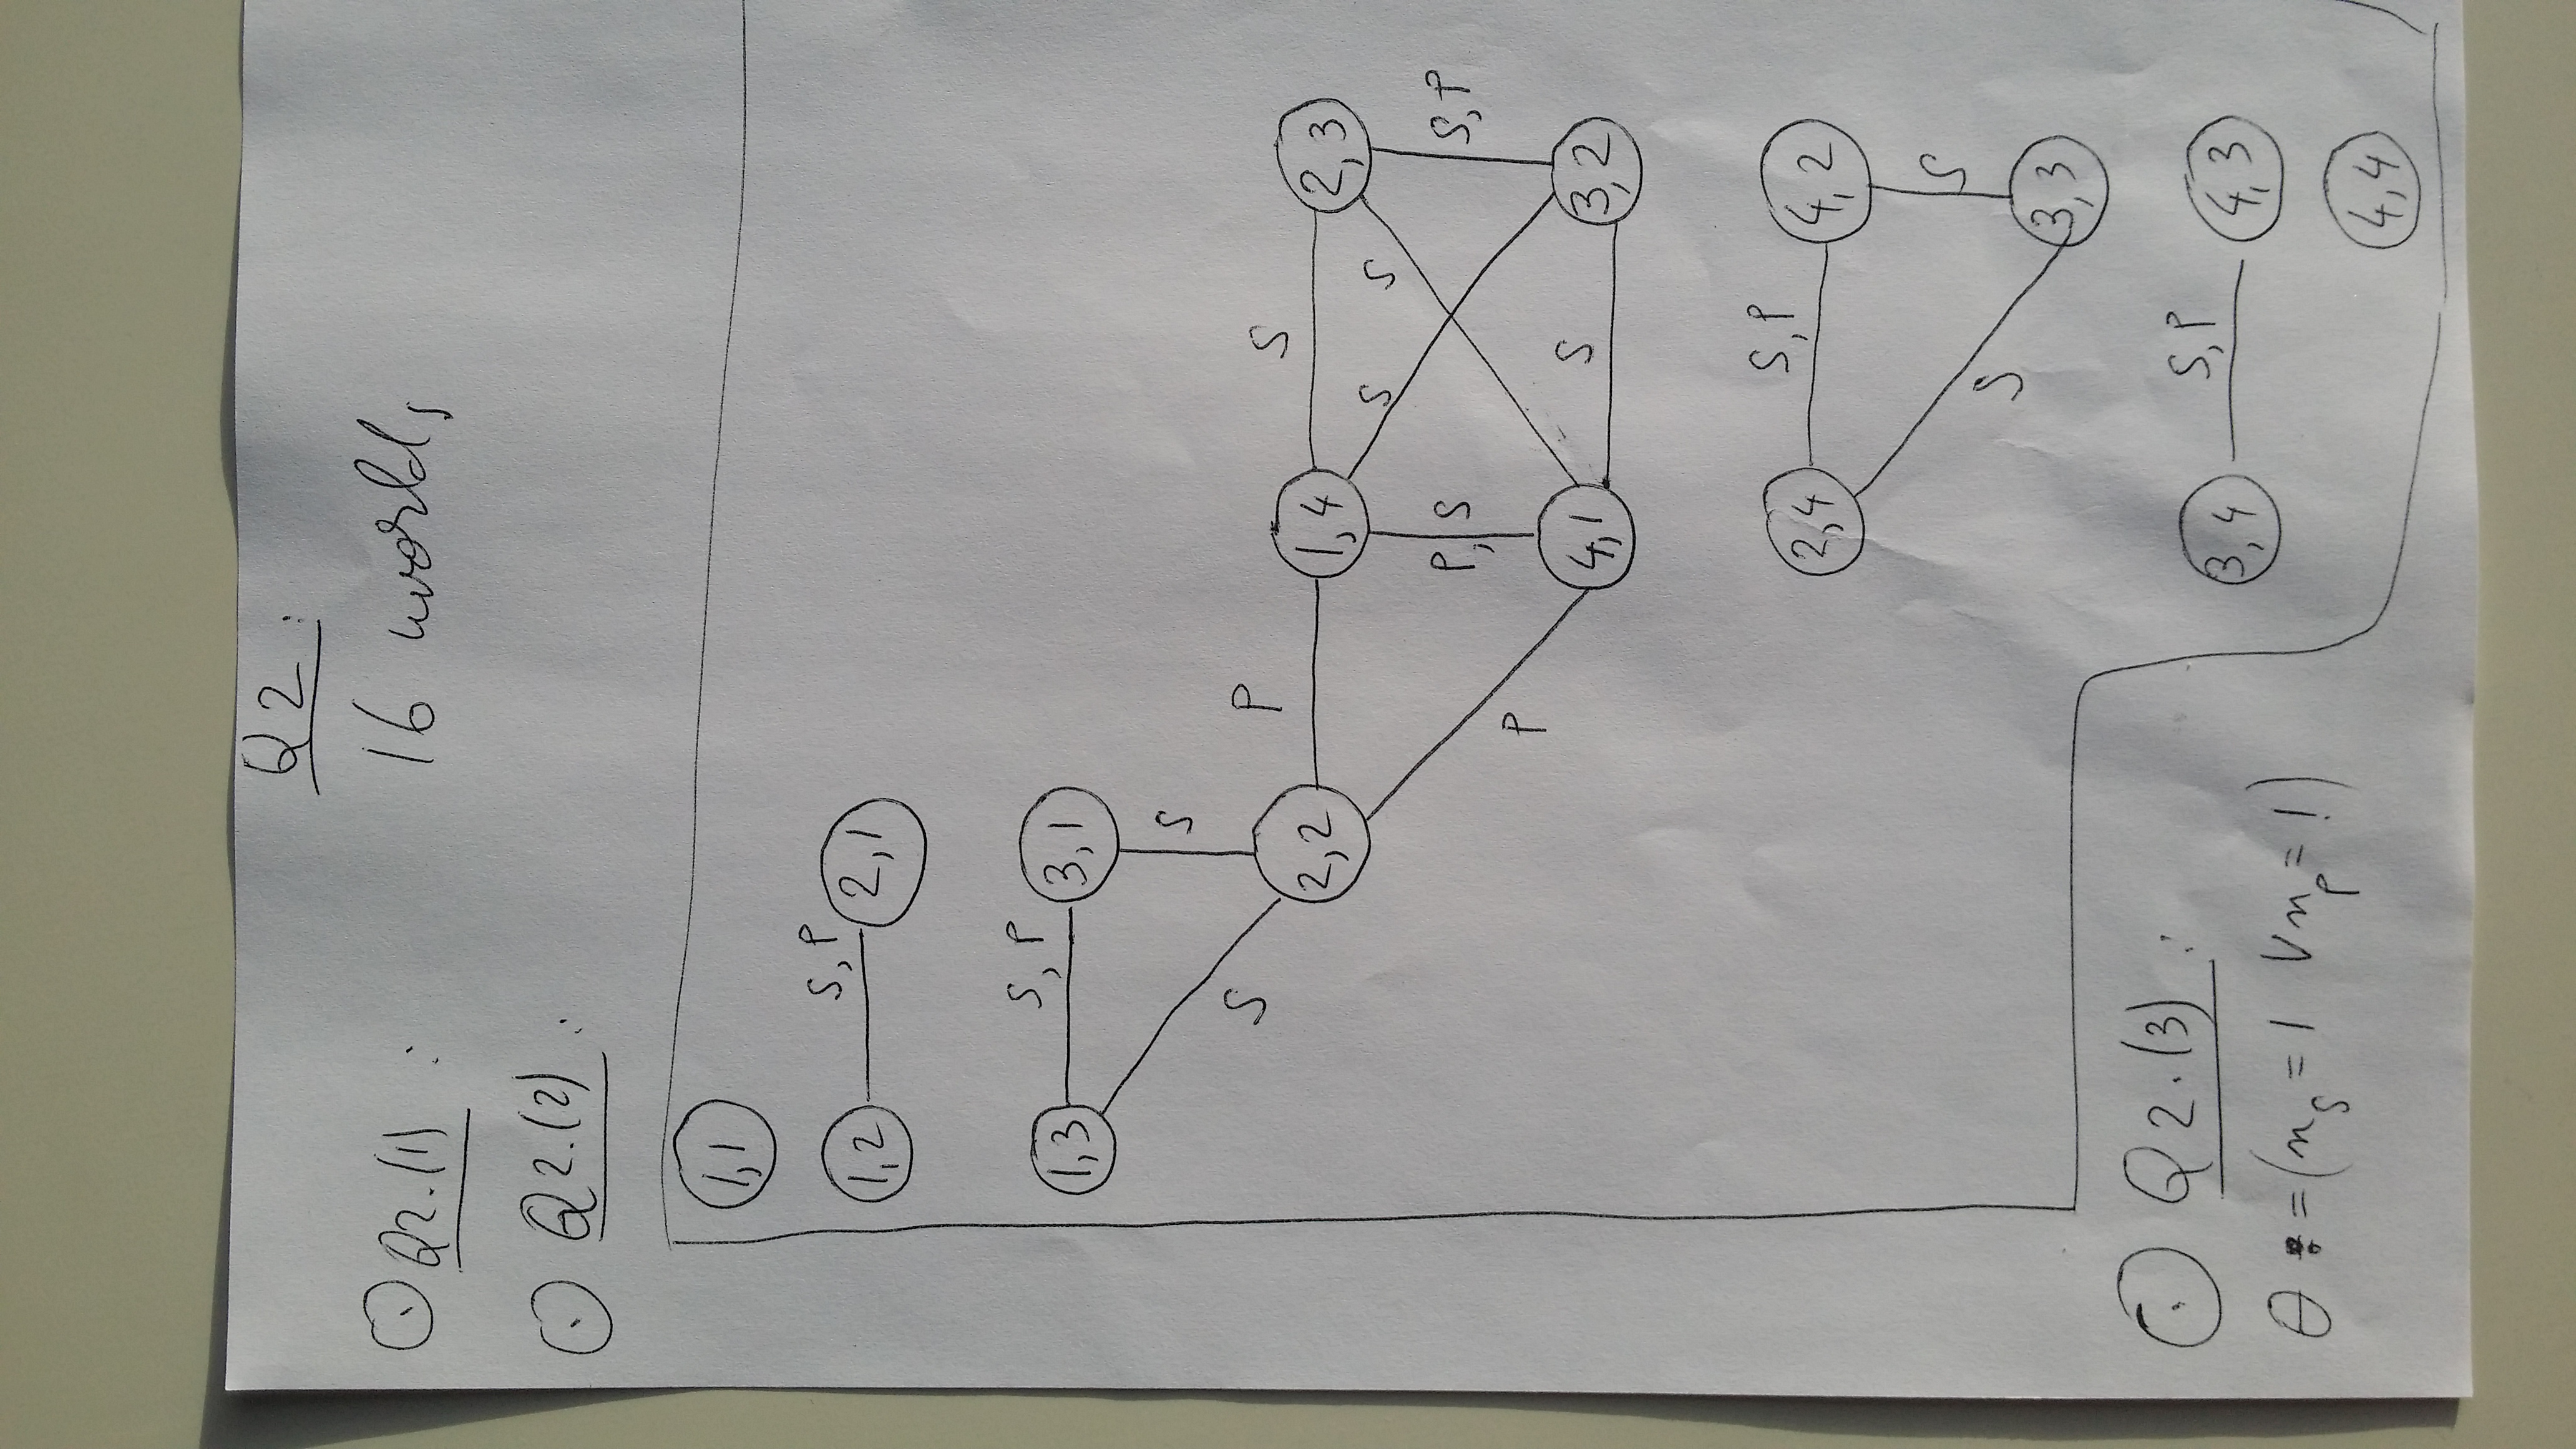 Q2:
⊙ Q2.(1): 16 worlds
⊙ Q2.(2):
1,1
1,2 S,P 2,1
1,3 S,P 3,1
S S
2,2 P 1,4 S 2,3
P P,S S S S,P
4,1 S 3,2
2,4 S,P 4,2
S S
3,3
3,4 S,P 4,3
4,4
⊙ Q2.(3):
θ := (n_S = 1 ∨ n_P = 1)